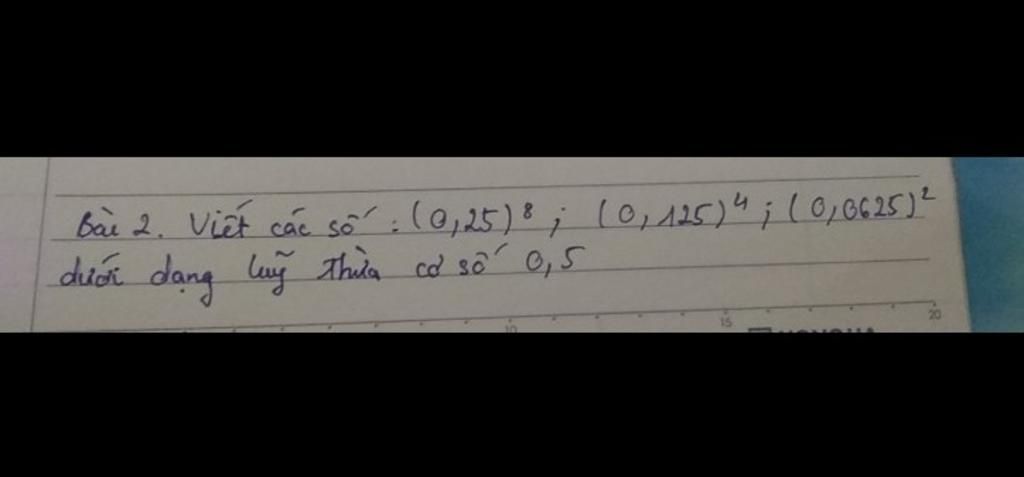 Bài 2. Viết các số : (0,25)⁸ ; (0,125)⁴ ; (0,0625)²
dưới dạng luỹ thừa cơ số 0,5
10 15 20